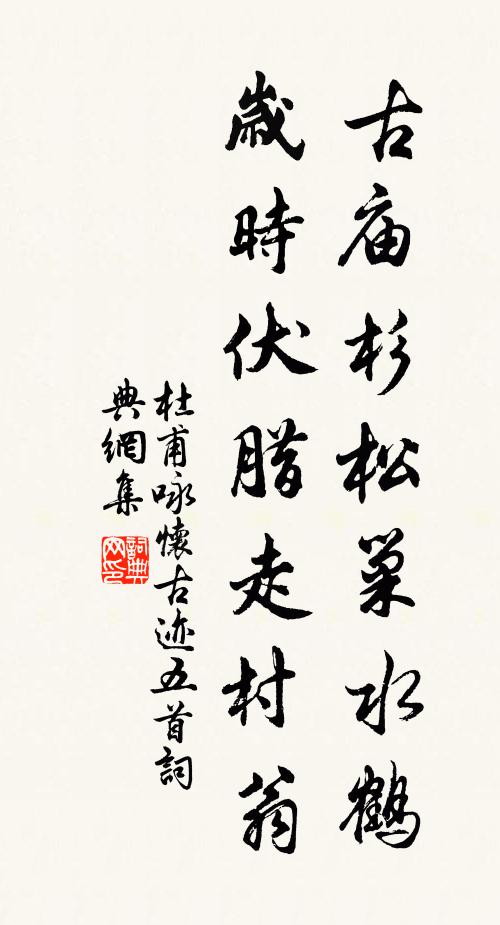 古庙杉松巢水鹤
歲時伏腊走村翁
杜甫咏懷古迹五首詞
典網集
詞典
网印